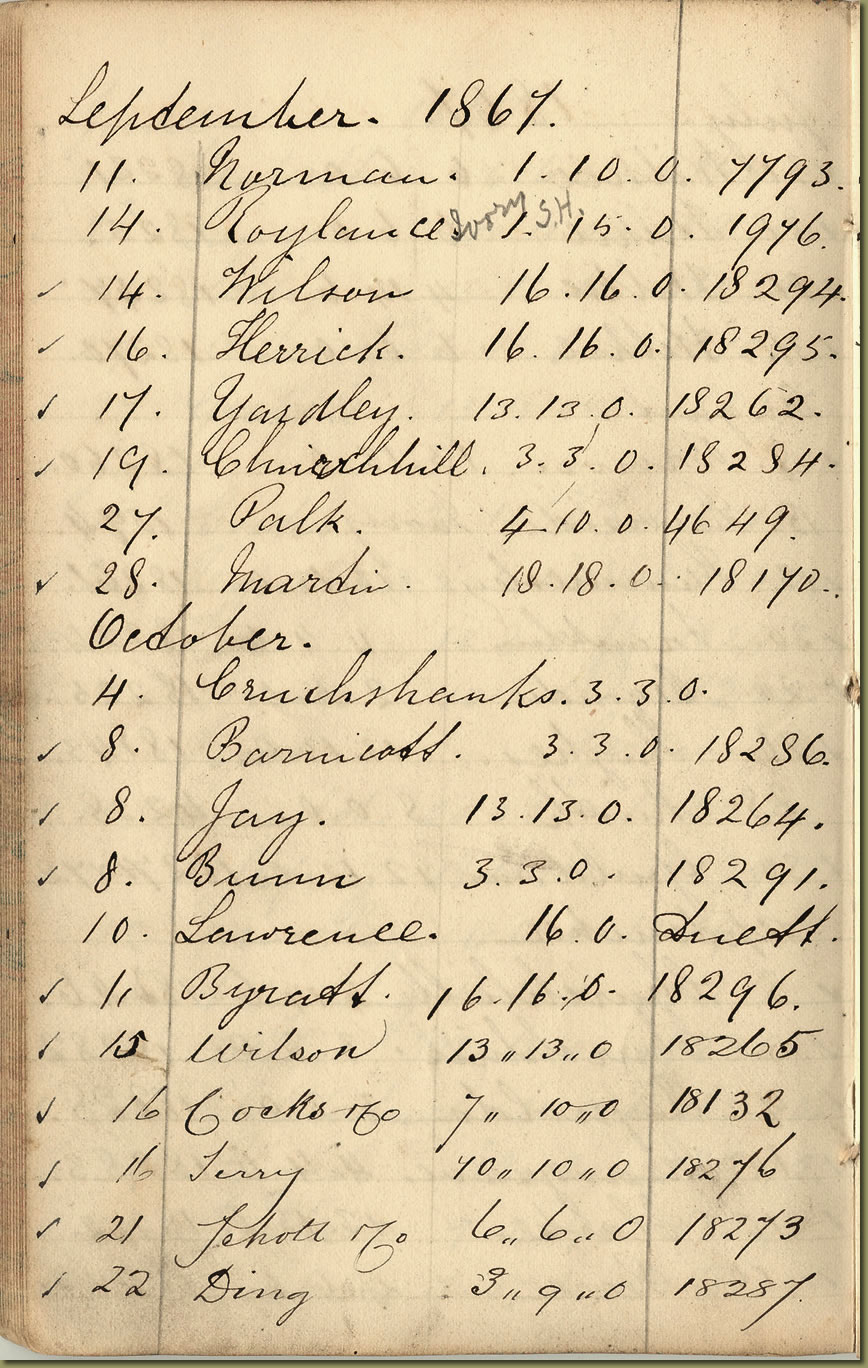 September. 1867.
11. Norman. 1. 10. 0. 7793.
14. Roylance. Ivory S.H. 1. 15. 0. 1976.
✓ 14. Wilson 16. 16. 0. 18294.
✓ 16. Herrick. 16. 16. 0. 18295.
✓ 17. Yardley. 13. 13. 0. 18262.
✓ 19. Churchhill. 3. 3. 0. 18284.
27. Palk. 4. 10. 0. 4649.
✓ 28. Martin. 18. 18. 0. 18170.
October.
4. Cruchshanks. 3. 3. 0.
✓ 8. Barnicott. 3. 3. 0. 18286.
✓ 8. Jay. 13. 13. 0. 18264.
✓ 8. Bunn 3. 3. 0. 18291.
10. Lawrence. 16. 0. Duett.
✓ 11 Byratt. 16. 16. 0. 18296.
✓ 15 Wilson 13 " 13 " 0 18265
✓ 16 Cocks & Co 7 " 10 " 0 18132
✓ 16 Terry 10 " 10 " 0 18276
✓ 21 Schott & Co 6 " 6 " 0 18273
✓ 22 Ding 3 " 9 " 0 18287